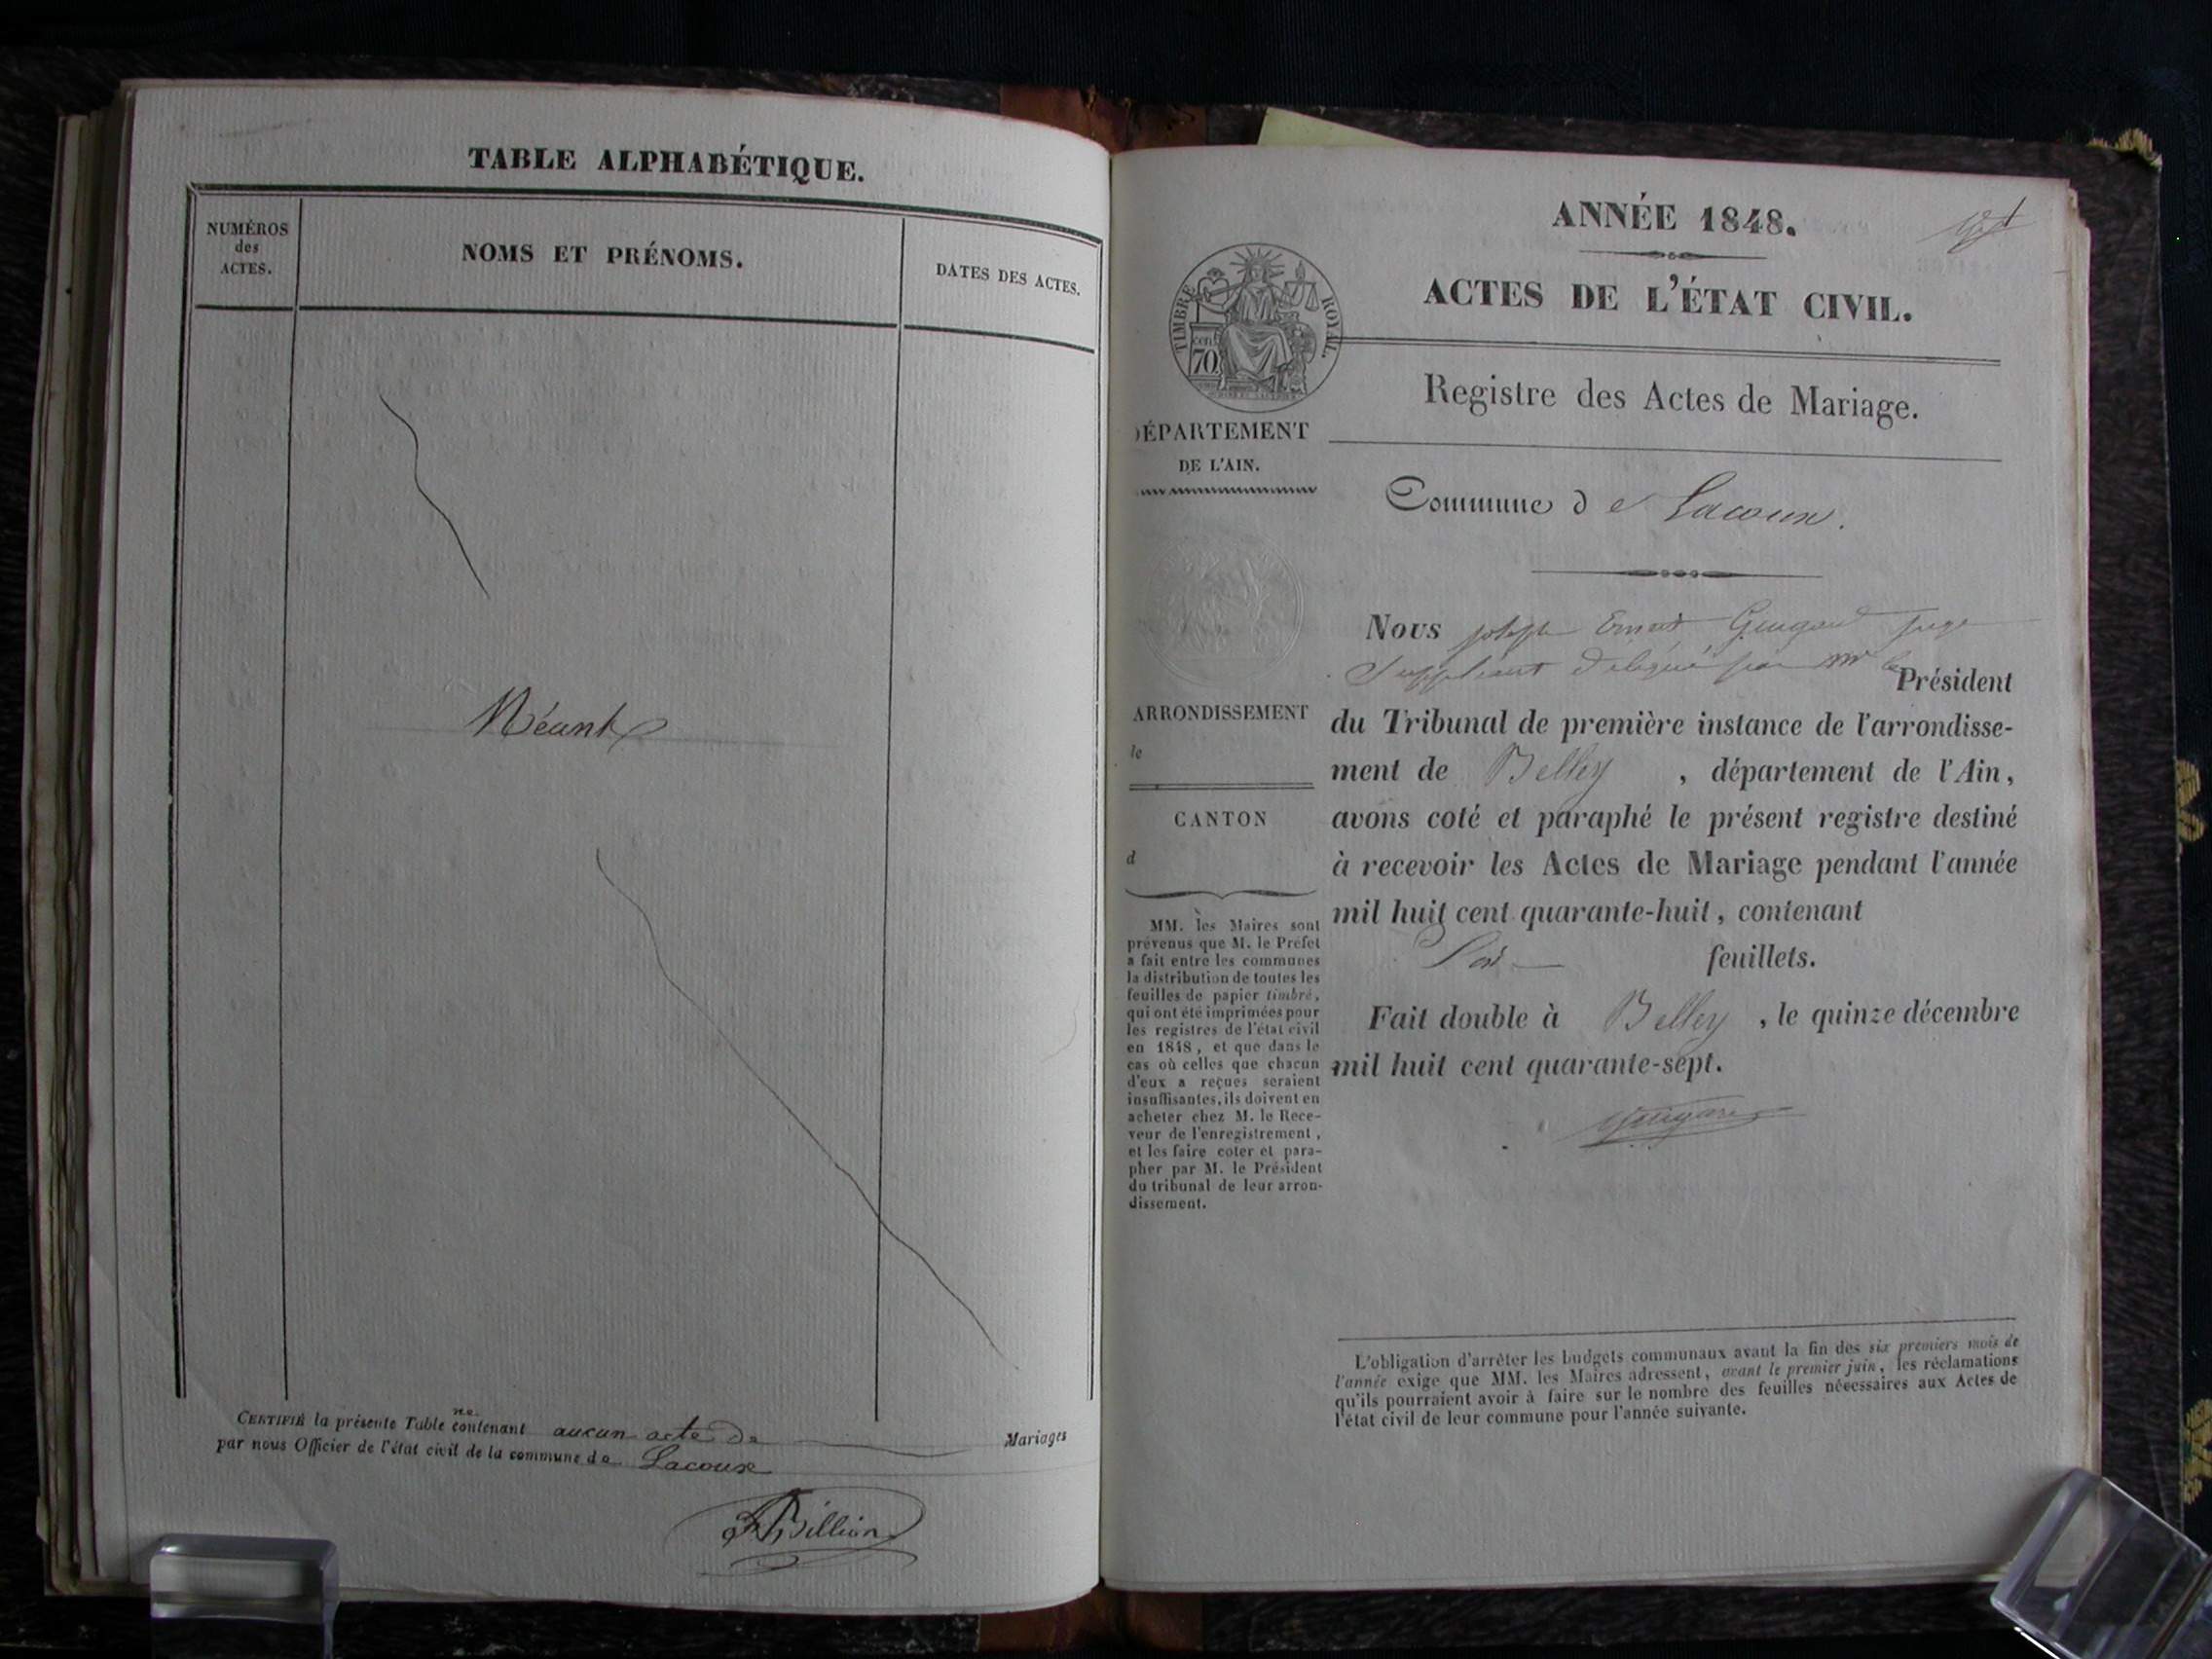 TABLE ALPHABÉTIQUE.
NUMÉROS
des
ACTES.
NOMS ET PRÉNOMS.
DATES DES ACTES.
Néant
CERTIFIÉ la présente Table ne contenant aucun acte de Mariages
par nous Officier de l'état civil de la commune de Lacoux
Billion
ANNÉE 1848.
ACTES DE L'ÉTAT CIVIL.
TIMBRE ROYAL.
cent.
70
Registre des Actes de Mariage.
DÉPARTEMENT
DE L'AIN.
Commune de Lacoux.
Nous joseph Ernest juge
Suppléant délégué par Mr le Président
ARRONDISSEMENT
de
du Tribunal de première instance de l'arrondisse-
ment de Belley, département de l'Ain,
CANTON
d
avons coté et paraphé le présent registre destiné
à recevoir les Actes de Mariage pendant l'année
mil huit cent quarante-huit, contenant
feuillets.
Fait double à Belley, le quinze décembre
mil huit cent quarante-sept.
MM. les Maires sont
prévenus que M. le Préfet
a fait entre les communes
la distribution de toutes les
feuilles de papier timbré,
qui ont été imprimées pour
les registres de l'état civil
en 1848, et que dans le
cas où celles que chacun
d'eux a reçues seraient
insuffisantes, ils doivent en
acheter chez M. le Rece-
veur de l'enregistrement,
et les faire coter et para-
pher par M. le Président
du tribunal de leur arron-
dissement.
L'obligation d'arrêter les budgets communaux avant la fin des six premiers mois de
l'année exige que MM. les Maires adressent, avant le premier juin, les réclamations
qu'ils pourraient avoir à faire sur le nombre des feuilles nécessaires aux Actes de
l'état civil de leur commune pour l'année suivante.